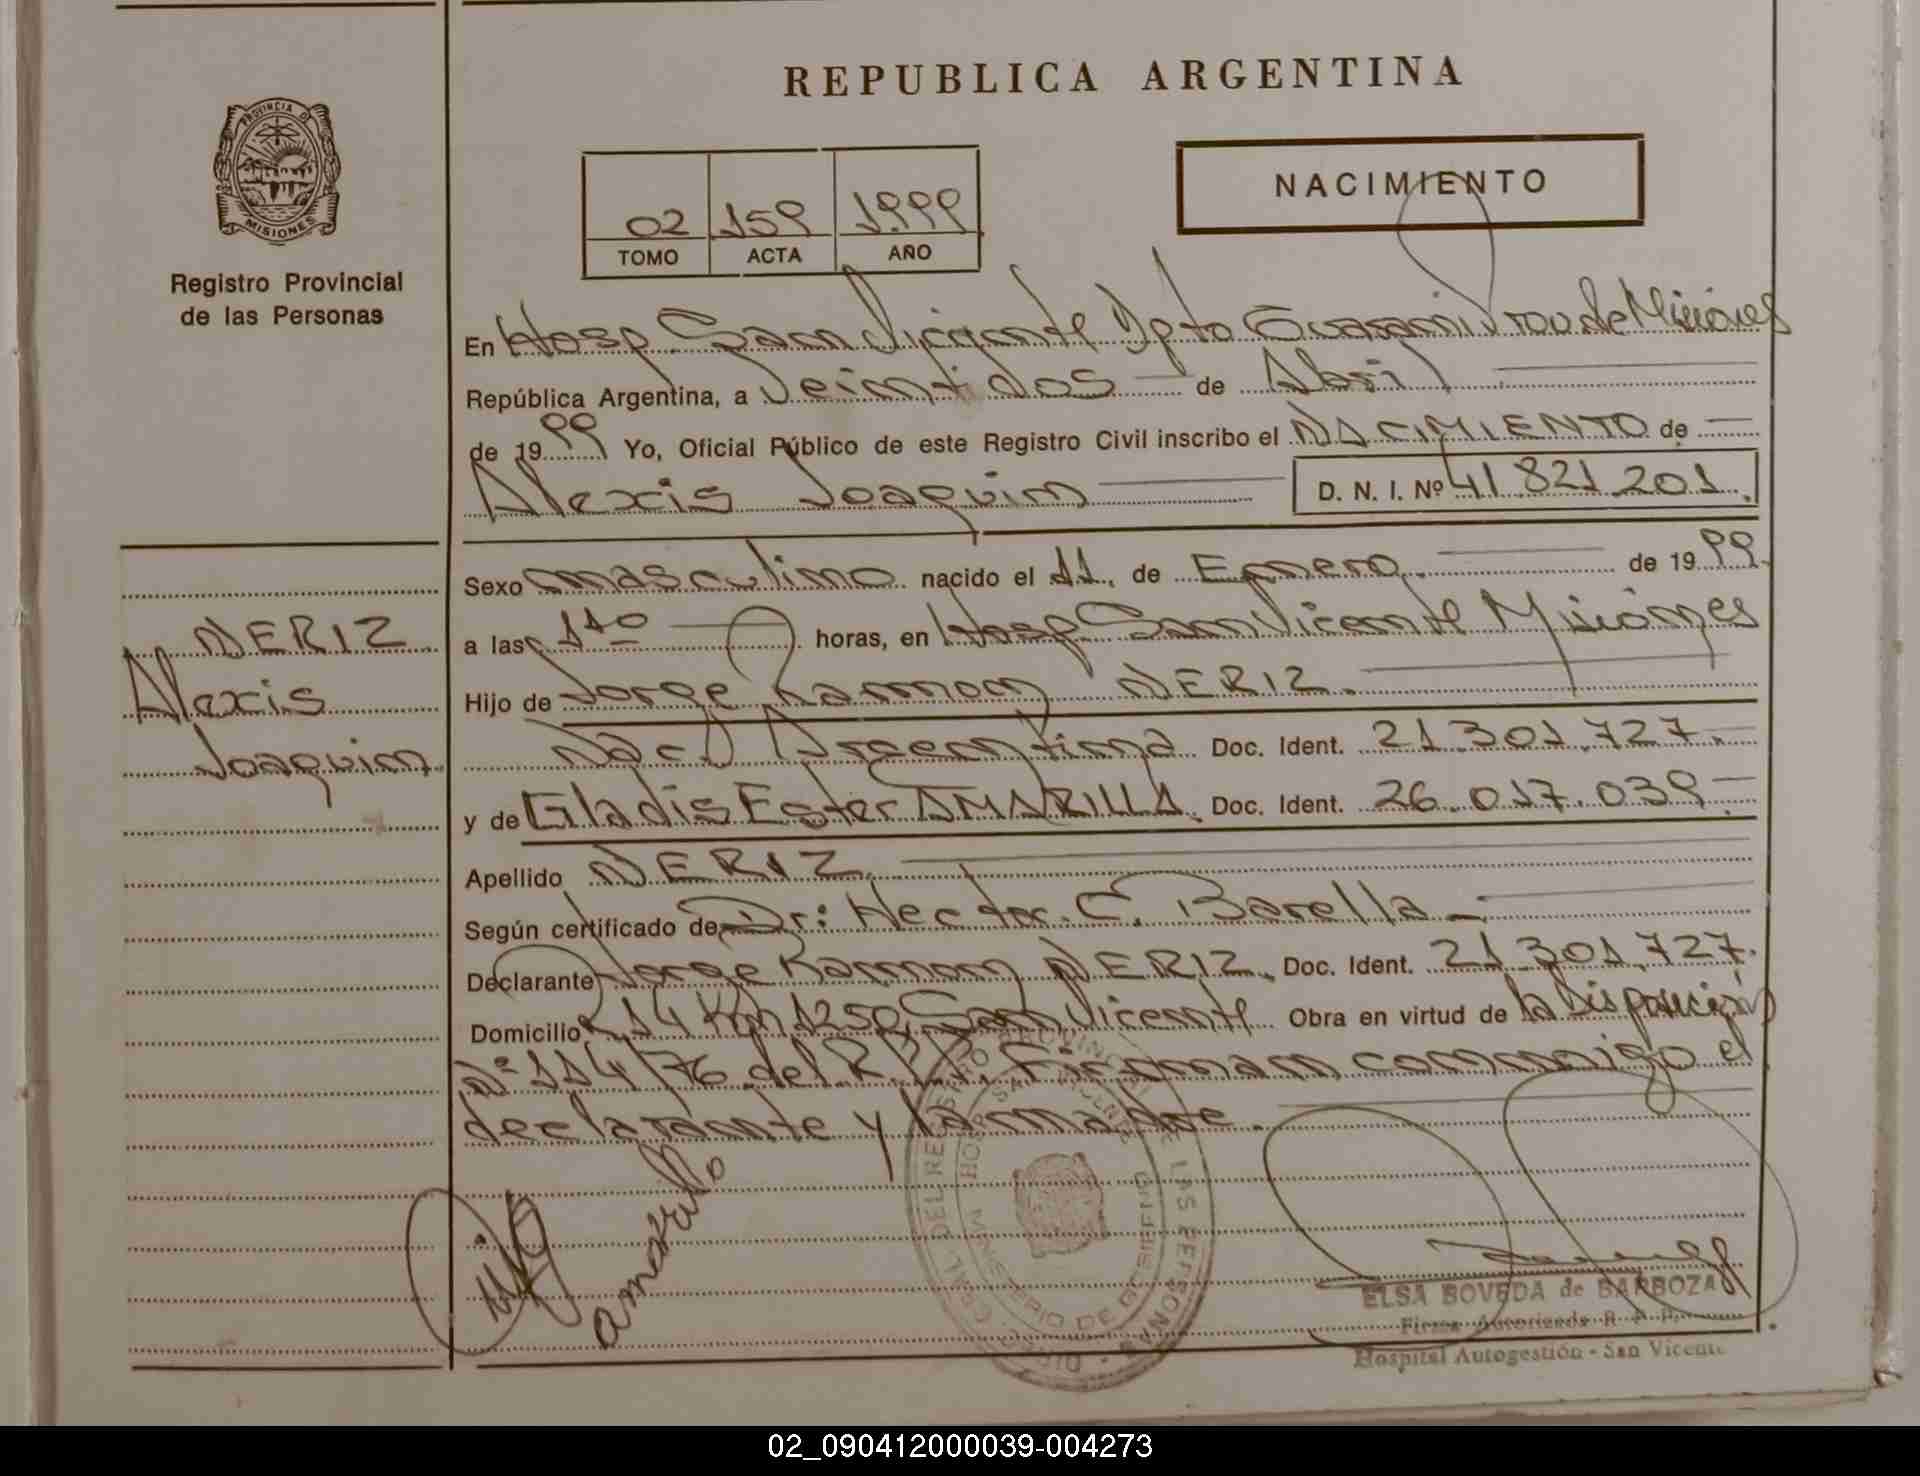 REPUBLICA ARGENTINA
NACIMIENTO
02 159 1999
TOMO ACTA AÑO
Registro Provincial
de las Personas
En Hosp San Vicente Dpto Guarani Prov de Misiones
República Argentina, a Veintidos de Abril
de 1999 Yo, Oficial Público de este Registro Civil inscribo el NACIMIENTO de
Alexis Joaquin D. N. I. Nº 41.821.201.
Sexo masculino nacido el 11 de Enero de 1999.
a las horas, en Hosp San Vicente Misiones
Hijo de Jorge Ramon NERIZ.
Nac. Argentina Doc. Ident. 21.301.727.
y de Gladis Ester AMARILLA. Doc. Ident. 26.017.039
Apellido NERIZ
Según certificado de Dr: Hector C. Barella
Declarante Jorge Ramon NERIZ. Doc. Ident. 21.301.727.
Domicilio R 14 Km 1250 San Vicente Obra en virtud de la Disposición
Nº 114/76 del R.P.P. Firman conmigo el
declarante y la madre.
NERIZ
Alexis
Joaquin
amarilla
DEL REGISTRO PROVINCIAL DE LAS PERSONAS
HOSP. SAN VICENTE
MINISTERIO DE GOBIERNO
ELSA BOVEDA de BARBOZA
Firma Autorizada R. P. P.
Hospital Autogestión - San Vicente
02_090412000039-004273